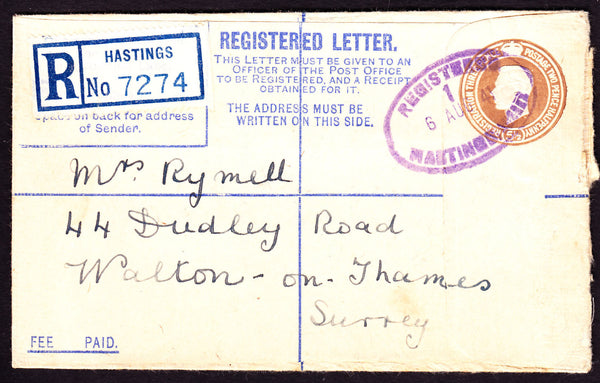 HASTINGS
R No 7274
REGISTERED LETTER.
THIS LETTER MUST BE GIVEN TO AN
OFFICER OF THE POST OFFICE
TO BE REGISTERED, AND A RECEIPT
OBTAINED FOR IT.
THE ADDRESS MUST BE
WRITTEN ON THIS SIDE.
on back for address
of Sender.
REGISTERED
1
6 AU
HASTINGS
POSTAGE TWO PENCE HALFPENNY
Mrs Rymell
44 Dudley Road
Walton-on-Thames
Surrey
FEE PAID.